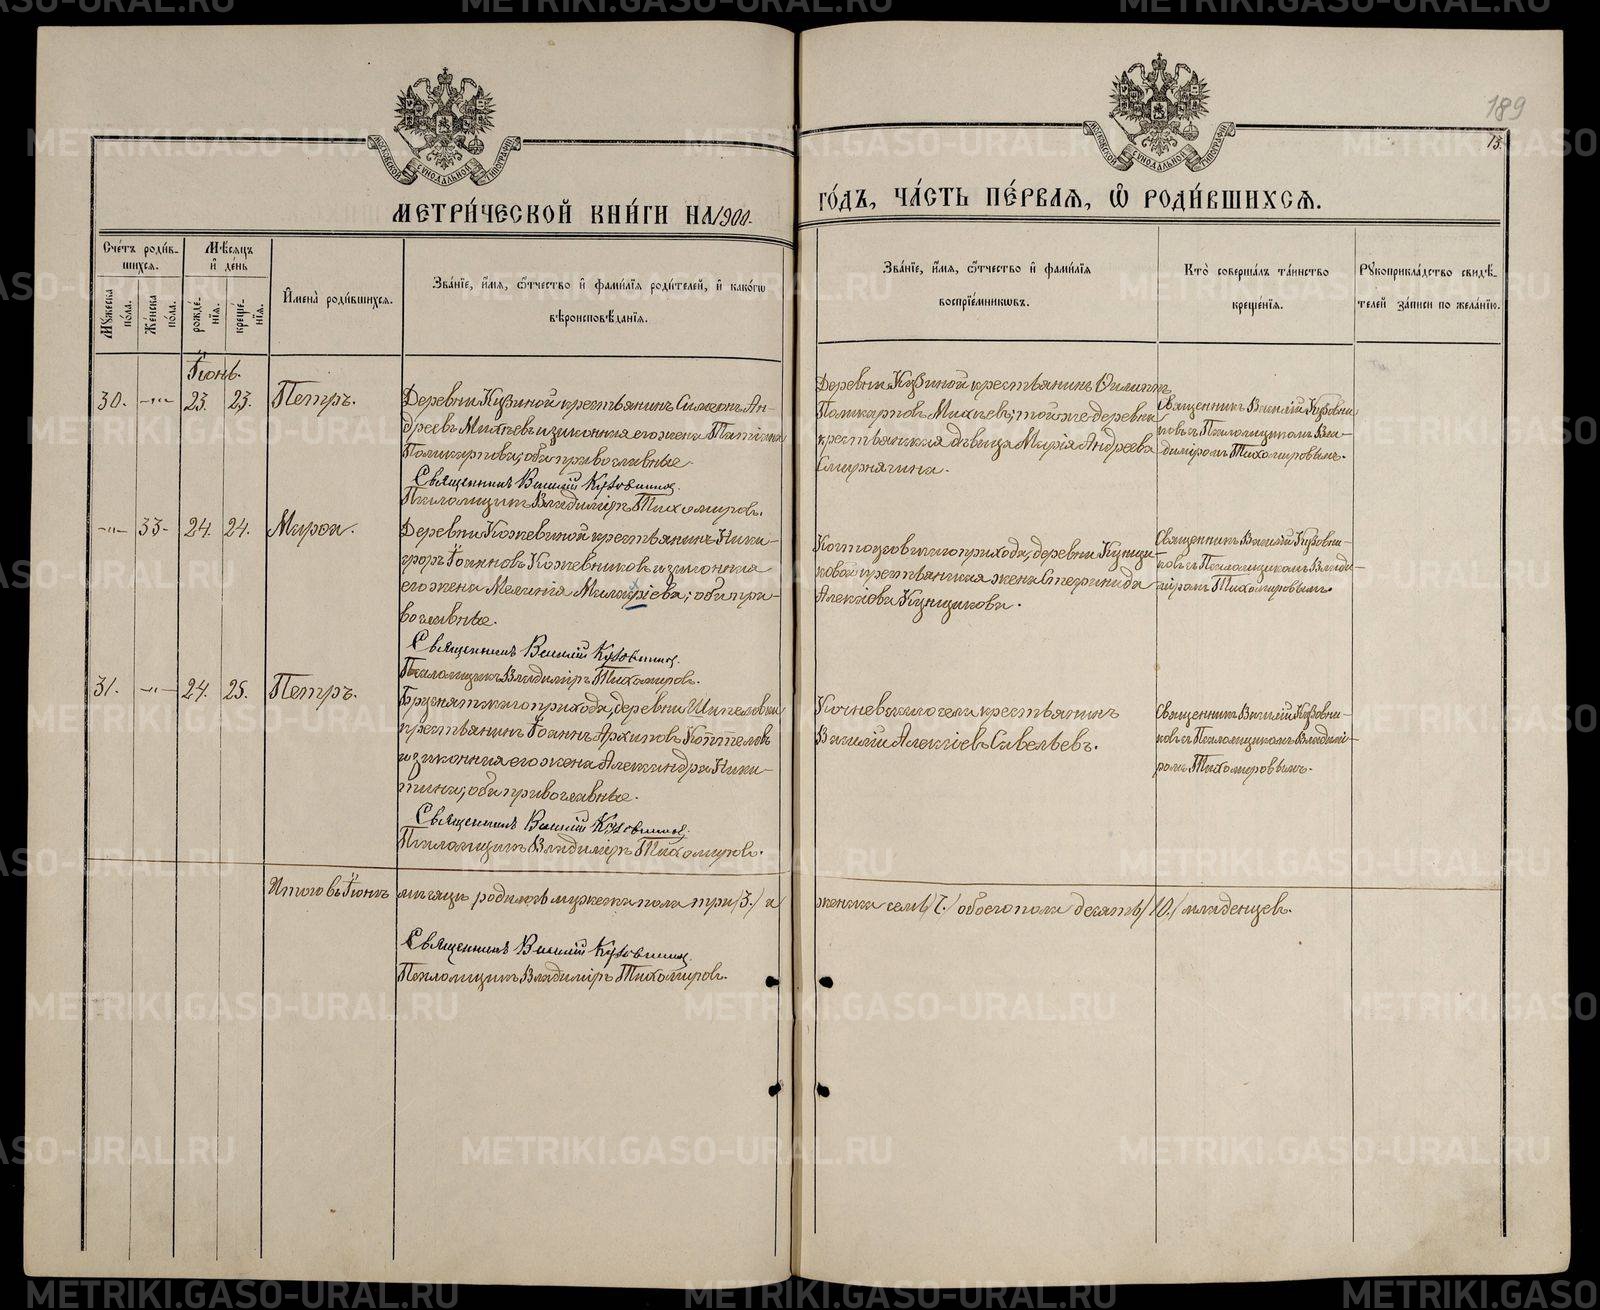 189
13.
МЕТРИ́ЧЕСКОЙ КНИ́ГИ НА 1900.
ГО́ДЪ, ЧА́СТЬ ПЕ́РВАѦ, Ѡ҆ РОДИ́ВШИХСѦ.
Сче́тъ роди́в-
шихсѧ.
Мѣ́сѧцъ
и҆ де́нь
Мꙋ́жеска
по́ла.
Же́нска
по́ла.
рожде́-
нїѧ.
креще́-
нїѧ.
И҆мена̀ роди́вшихсѧ.
Зва́нїе, и҆́мѧ, ѻ҆́тчество и҆ фами́лїѧ роди́телей, и҆ како́гѡ
вѣроисповѣ́данїѧ.
Зва́нїе, и҆́мѧ, ѻ҆́тчество и҆ фами́лїѧ
воспрїе́мникѡвъ.
Кто̀ соверша́лъ та́инство
креще́нїѧ.
Рꙋкоприкла́дство свидѣ́-
телей за́писи по жела́нїю.
Іюнь.
30. -"- 23. 23. Петръ.
Деревни Кузиной крестьянинъ Симеонъ Ан-
дреевъ Михѣевъ и законная его жена Татіана
Поликарпова; оба православные.
Священникъ Василій Кузовниковъ
Псаломщикъ Владиміръ Тихомировъ.
Деревни Кузиной крестьянинъ Филиппъ
Поликарповъ Михѣевъ; той же деревни
крестьянская дѣвица Марія Андреева
Смирнягина.
Священникъ Василій Кузовни-
ковъ съ Псаломщикомъ Вла-
диміромъ Тихомировымъ.
-"- 33- 24. 24. Мирон.
Деревни Кожевиной крестьянинъ Ники-
форъ Іоанновъ Кожевниковъ и законная
его жена Меланія; оба пра-
вославные.
Священникъ Василій Кузовниковъ
Псаломщикъ Владиміръ Тихомировъ.
прихода, деревни Кунщи-
ковой крестьянская жена Стефанида
Алексіева Кунщикова.
Священникъ Василій Кузовни-
ковъ съ Псаломщикомъ Влади-
міромъ Тихомировымъ.
31. -"- 24. 25. Петръ.
Бруснятскаго прихода, деревни Шипеловки
крестьянинъ Іоаннъ Архиповъ Коптеловъ
и законная его жена Александра Ники-
тина; оба православные.
Священникъ Василій Кузовниковъ
Псаломщикъ Владиміръ Тихомировъ.
Кочневскаго села крестьянинъ
Василій Алексіевъ Савельевъ.
Священникъ Василій Кузовни-
ковъ съ Псаломщикомъ Владимі-
ромъ Тихомировымъ.
Итого въ Іюнѣ мѣсяцѣ родилось мужеска пола три /3./ и женска семь /7./ обоего пола десять /10./ младенцевъ.
Священникъ Василій Кузовниковъ
Псаломщикъ Владиміръ Тихомировъ.
METRIKI.GASO-URAL.RU